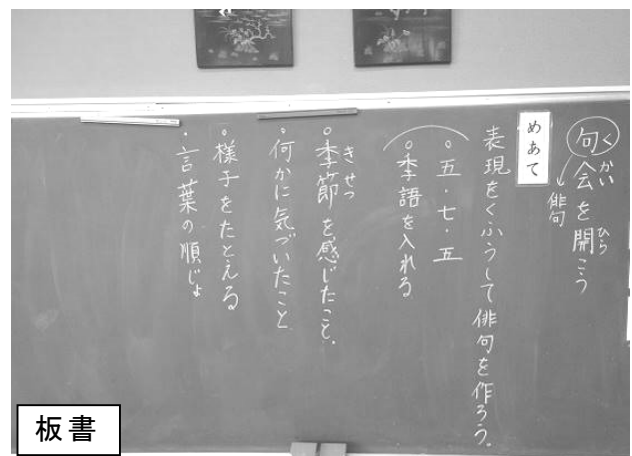 句会を開こう
くかい
ひら
俳句
めあて
表現をくふうして俳句を作ろう。
○五・七・五
○季語を入れる
○季節を感じたこと。
きせつ
・何かに気づいたこと
○様子をたとえる
・言葉の順じょ
板書